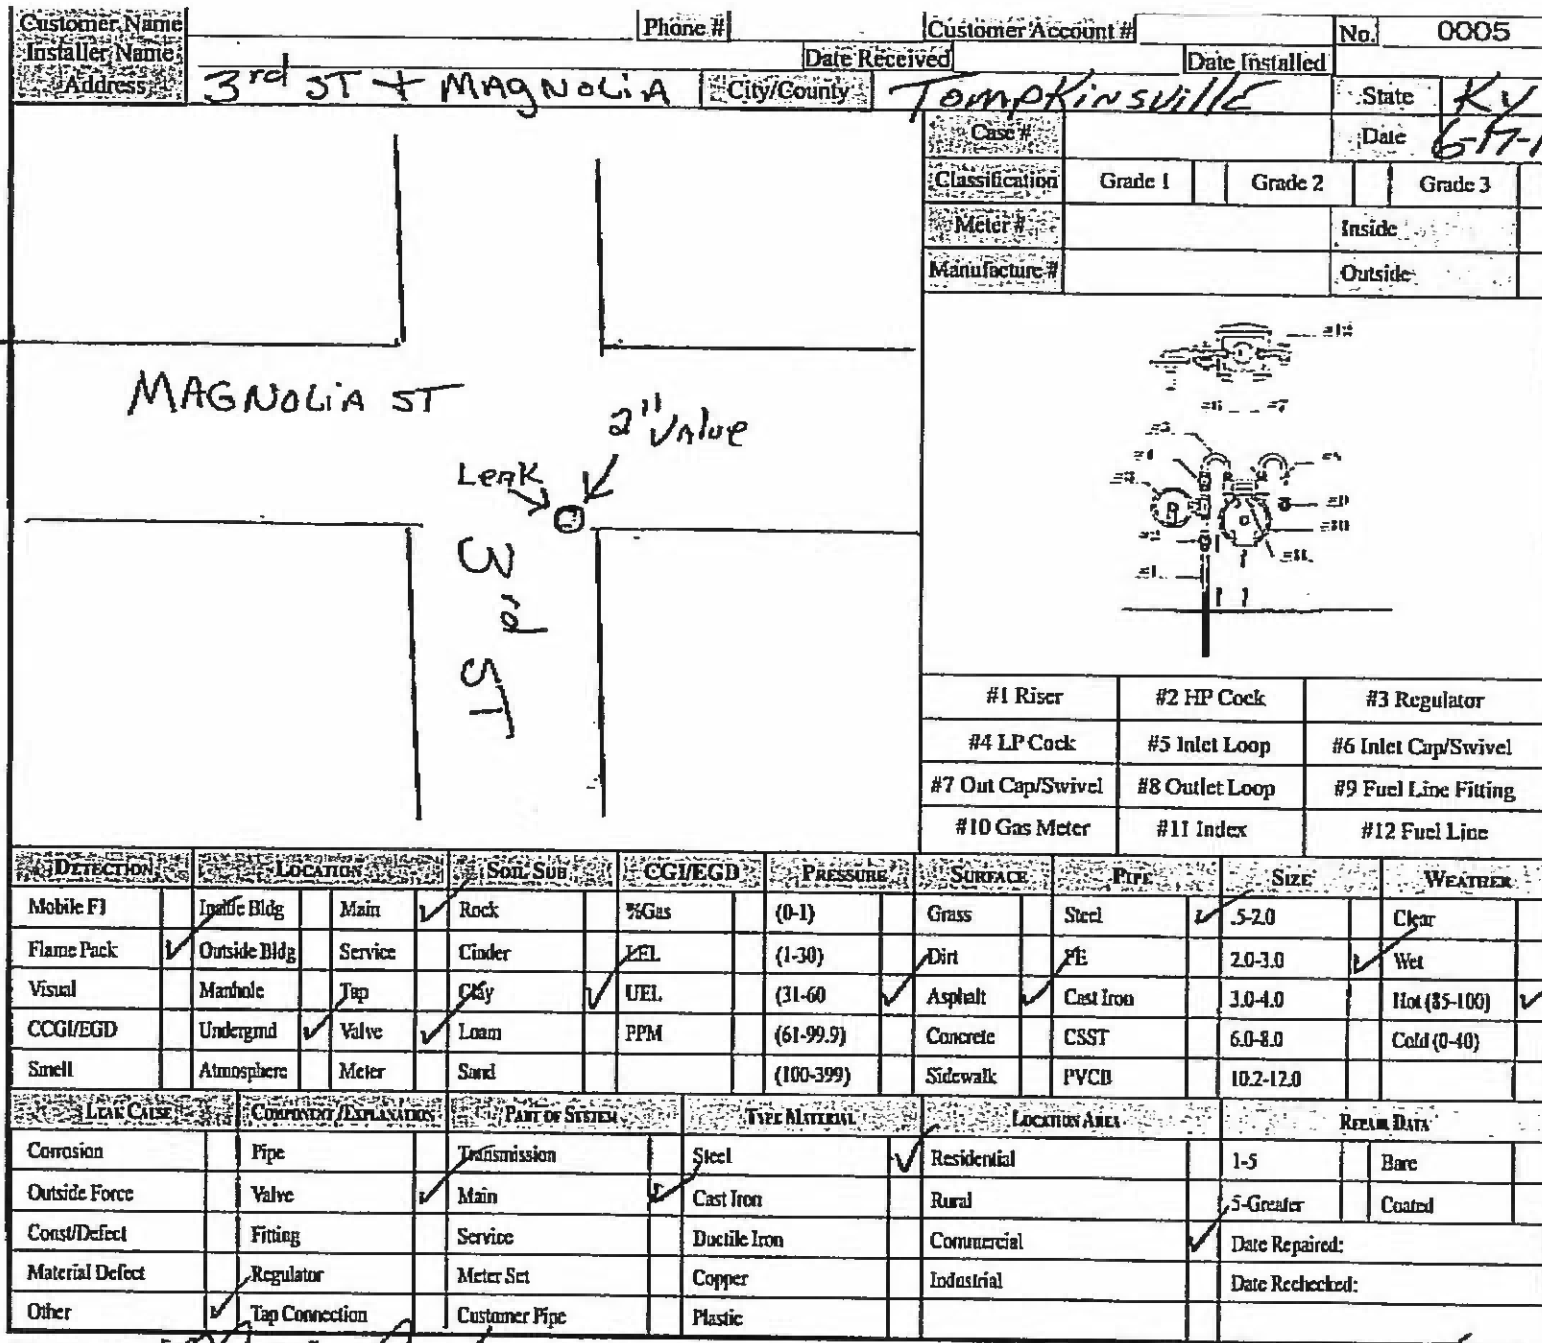 Customer Name Phone # Customer Account # No. 0005
Installer Name Date Received Date Installed
Address 3rd ST + MAGNOLIA City/County TOMPKINSVILLE State KY
Case # Date 6-17-1
Classification Grade 1 Grade 2 Grade 3
Meter # Inside
Manufacture # Outside
MAGNOLIA ST
2" VALVE
LEAK
3rd ST
#1 Riser #2 HP Cock #3 Regulator
#4 LP Cock #5 Inlet Loop #6 Inlet Cap/Swivel
#7 Out Cap/Swivel #8 Outlet Loop #9 Fuel Line Fitting
#10 Gas Meter #11 Index #12 Fuel Line
DETECTION LOCATION SOIL SUB CGI/EGD PRESSURE SURFACE PIPE SIZE WEATHER
Mobile FI Inside Bldg Main ✓ Rock %Gas (0-1) Grass Steel ✓ .5-2.0 Clear
Flame Pack ✓ Outside Bldg Service Cinder LEL (1-30) Dirt PE 2.0-3.0 ✓ Wet
Visual Manhole Tap Clay ✓ UEL (31-60 ✓ Asphalt ✓ Cast Iron 3.0-4.0 Hot (85-100) ✓
CCGI/EGD Undergrnd ✓ Valve ✓ Loam PPM (61-99.9) Concrete CSST 6.0-8.0 Cold (0-40)
Smell Atmosphere Meter Sand (100-399) Sidewalk PVCB 10.2-12.0
LEAK CAUSE COMPONENT/EXPLANATION PART OF SYSTEM TYPE MATERIAL LOCATION AREA REPAIR DATA
Corrosion Pipe Transmission Steel ✓ Residential 1-5 Bare
Outside Force Valve ✓ Main ✓ Cast Iron Rural 5-Greater Coated
Const/Defect Fitting Service Ductile Iron Commercial ✓ Date Repaired:
Material Defect Regulator Meter Set Copper Industrial Date Rechecked:
Other ✓ Tap Connection Customer Pipe Plastic